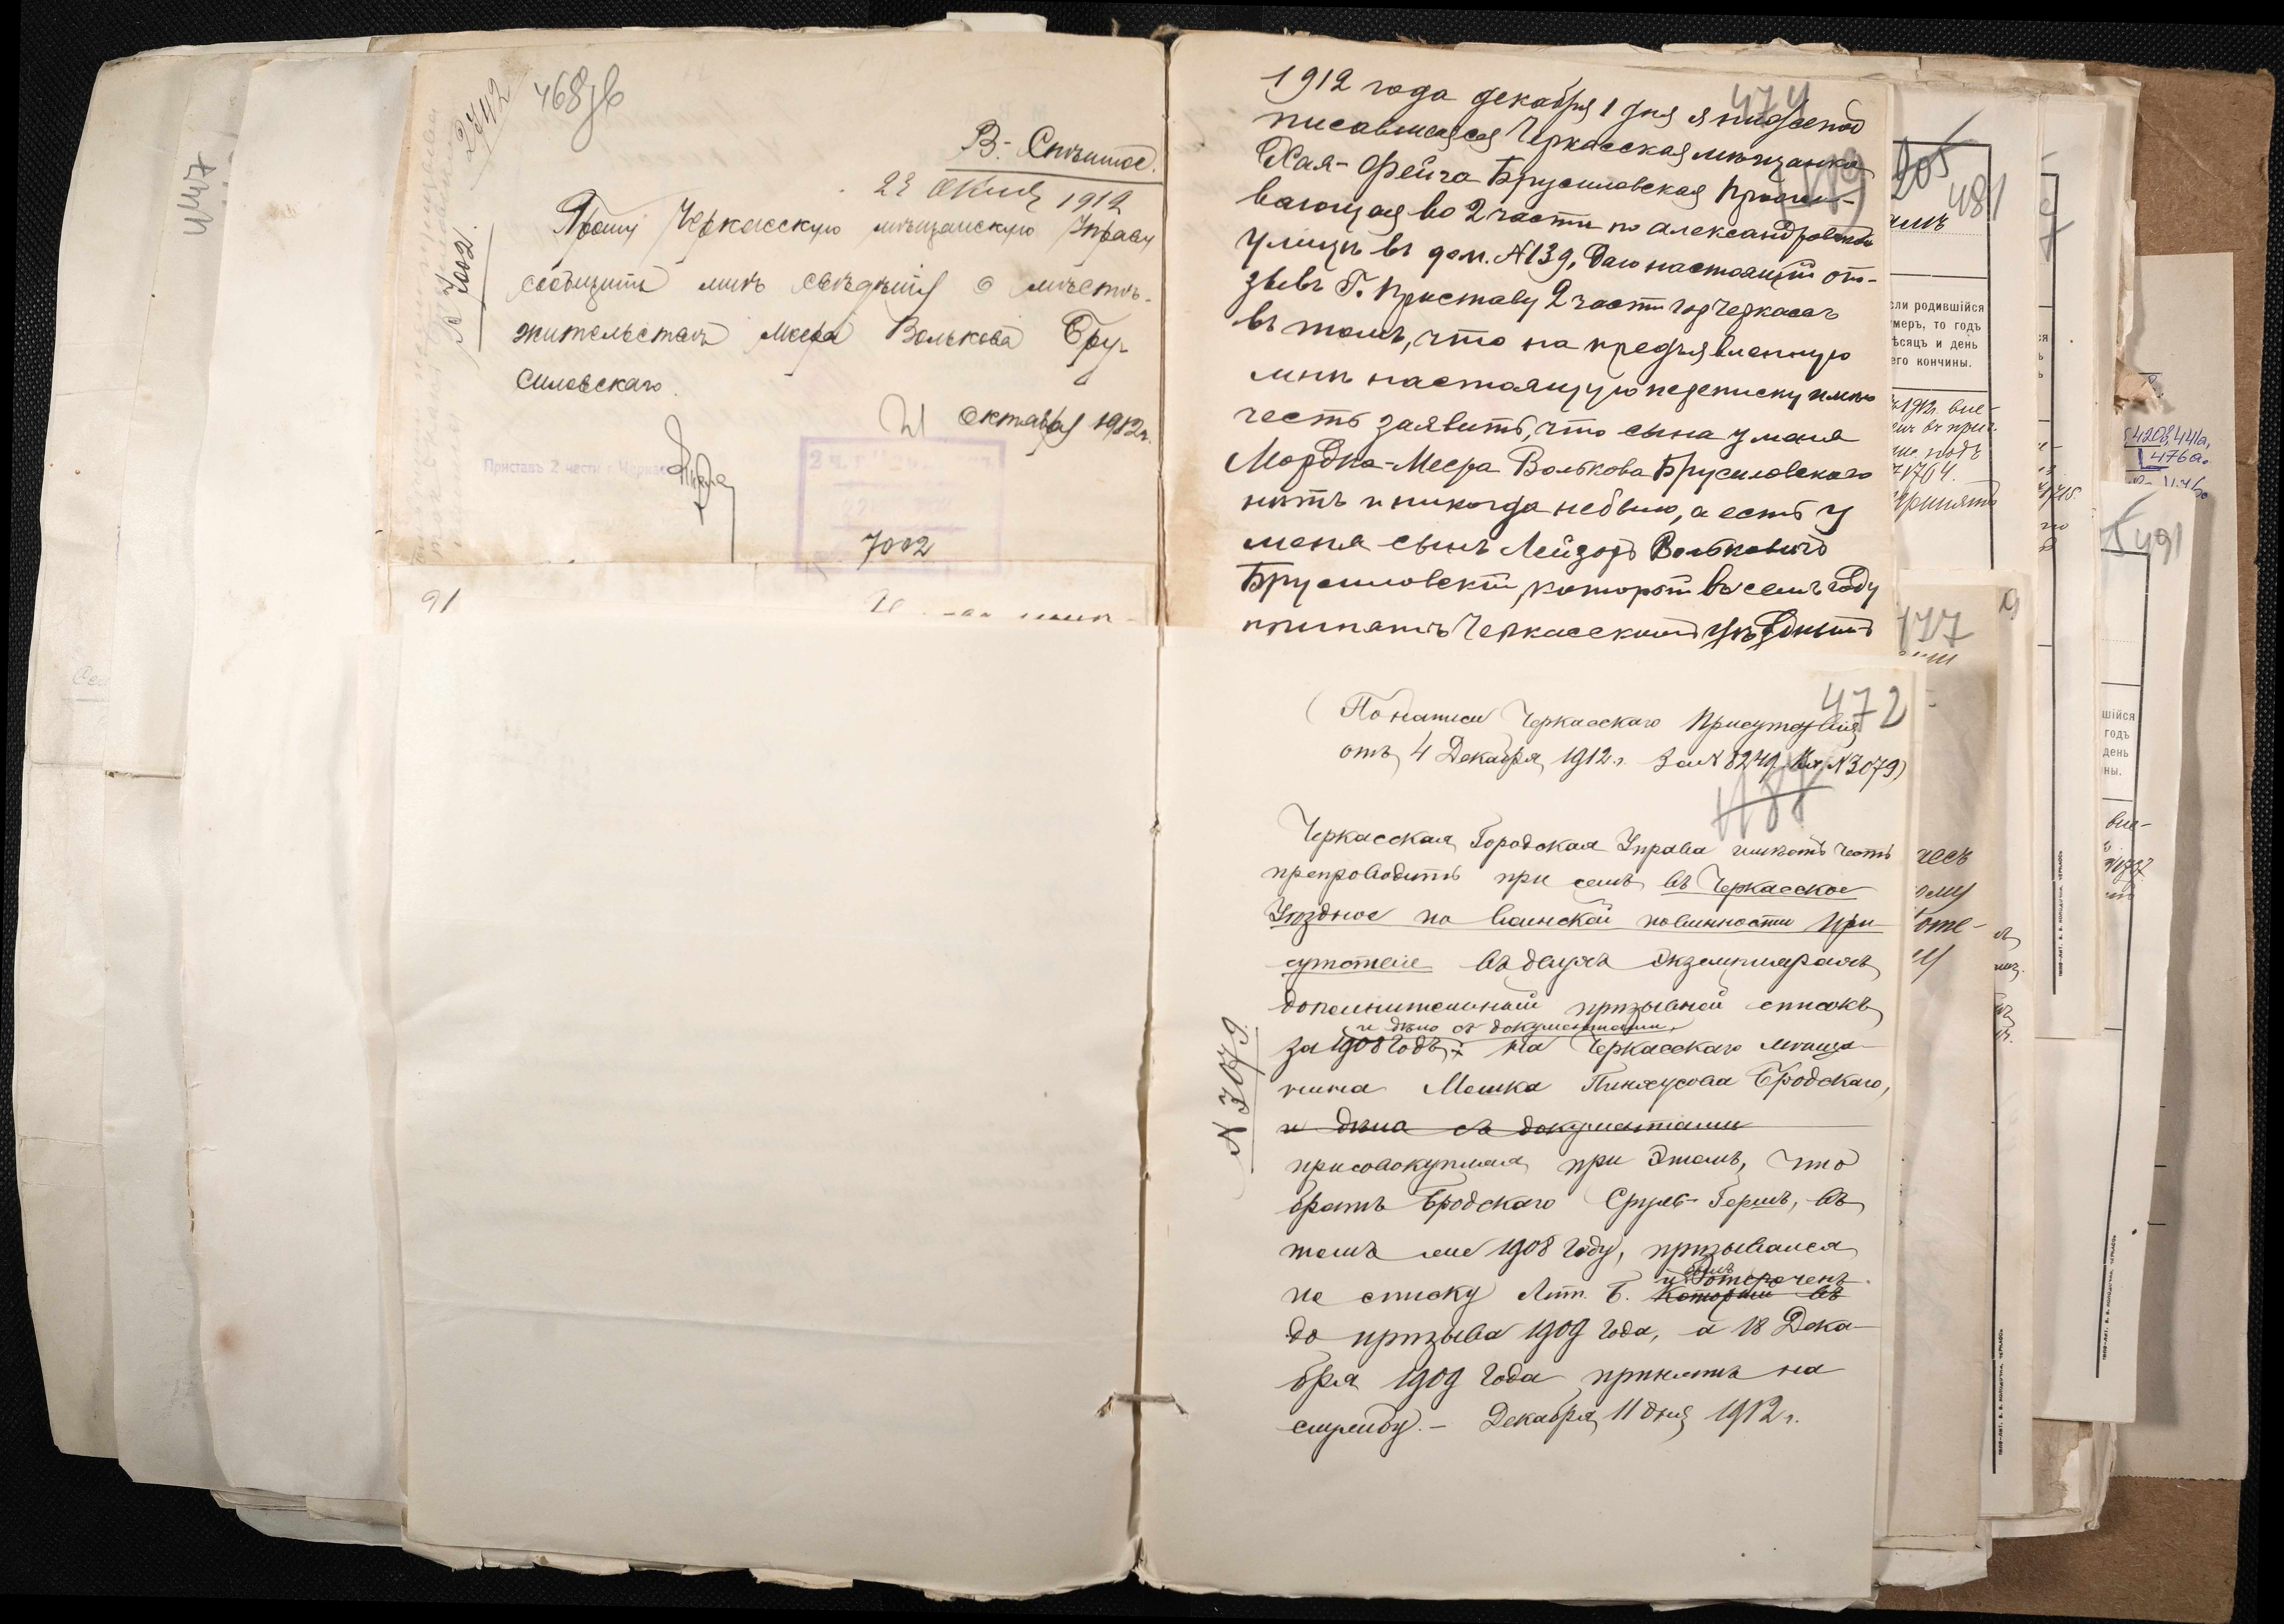 2742
468 об
В. Спѣшное.
22 Окт. 1912
№ 7002.
Прошу Черкасскую мѣщанскую Управу
сообщить мнѣ свѣдѣнія о мѣсто-
жительствѣ Месра Волькова Бру-
силовскаго.
21 Октября 1912 г.
Приставъ 2 части г. Черкассъ
7002
91
447
474
1912 года декабря 1 дня я нижепод
писавшаяся Черкасская мѣщанка
Хая-Фейга Брусиловская прожи-
вающая во 2 части по Александровской
улицѣ въ дом. №139, даю настоящій от-
зывъ Г. Приставу 2 части гор Черкассъ
въ томъ, что на предъявленную
мнѣ настоящую переписку имѣю
честь заявить, что сына у меня
Мордка-Месра Волькова Брусиловскаго
нѣтъ и никогда небыло, а есть у
меня сынъ Лейзоръ Вольковичъ
Брусиловскій, который въ семъ году
принятъ Черкасскимъ уѣзднымъ
472
(По надписи Черкасскаго Присутствія
отъ 4 Декабря 1912 г. за № 8249 Вх. №3079)
488
Черкасская Городская Управа имѣетъ честь
препроводить при семъ въ Черкасское
Уѣздное по воинской повинности При-
сутствіе въ двухъ экземплярахъ
дополнительный призывной списокъ
и дѣло съ документами,
за 1908 годъ, на Черкасскаго мѣща-
нина Мошка Пинхусова Бродскаго,
и дѣла съ документами
присовокупляя при этомъ, что
братъ Бродскаго Сруль-Гершъ, въ
томъ же 1908 году, призывался
по списку Лит. Б. который въ
и былъ отсроченъ
до призыва 1909 года, а 18 Дека-
бря 1909 года принятъ на
службу. - Декабря 11 дня 1912 г.
№ 3079
205
481
сли родившійся
меръ, то годъ
ѣсяцъ и день
его кончины.
1912. вне-
1764.
477
420в, 441а,
476а.
491
шійся
годъ
день
ны.
вне-